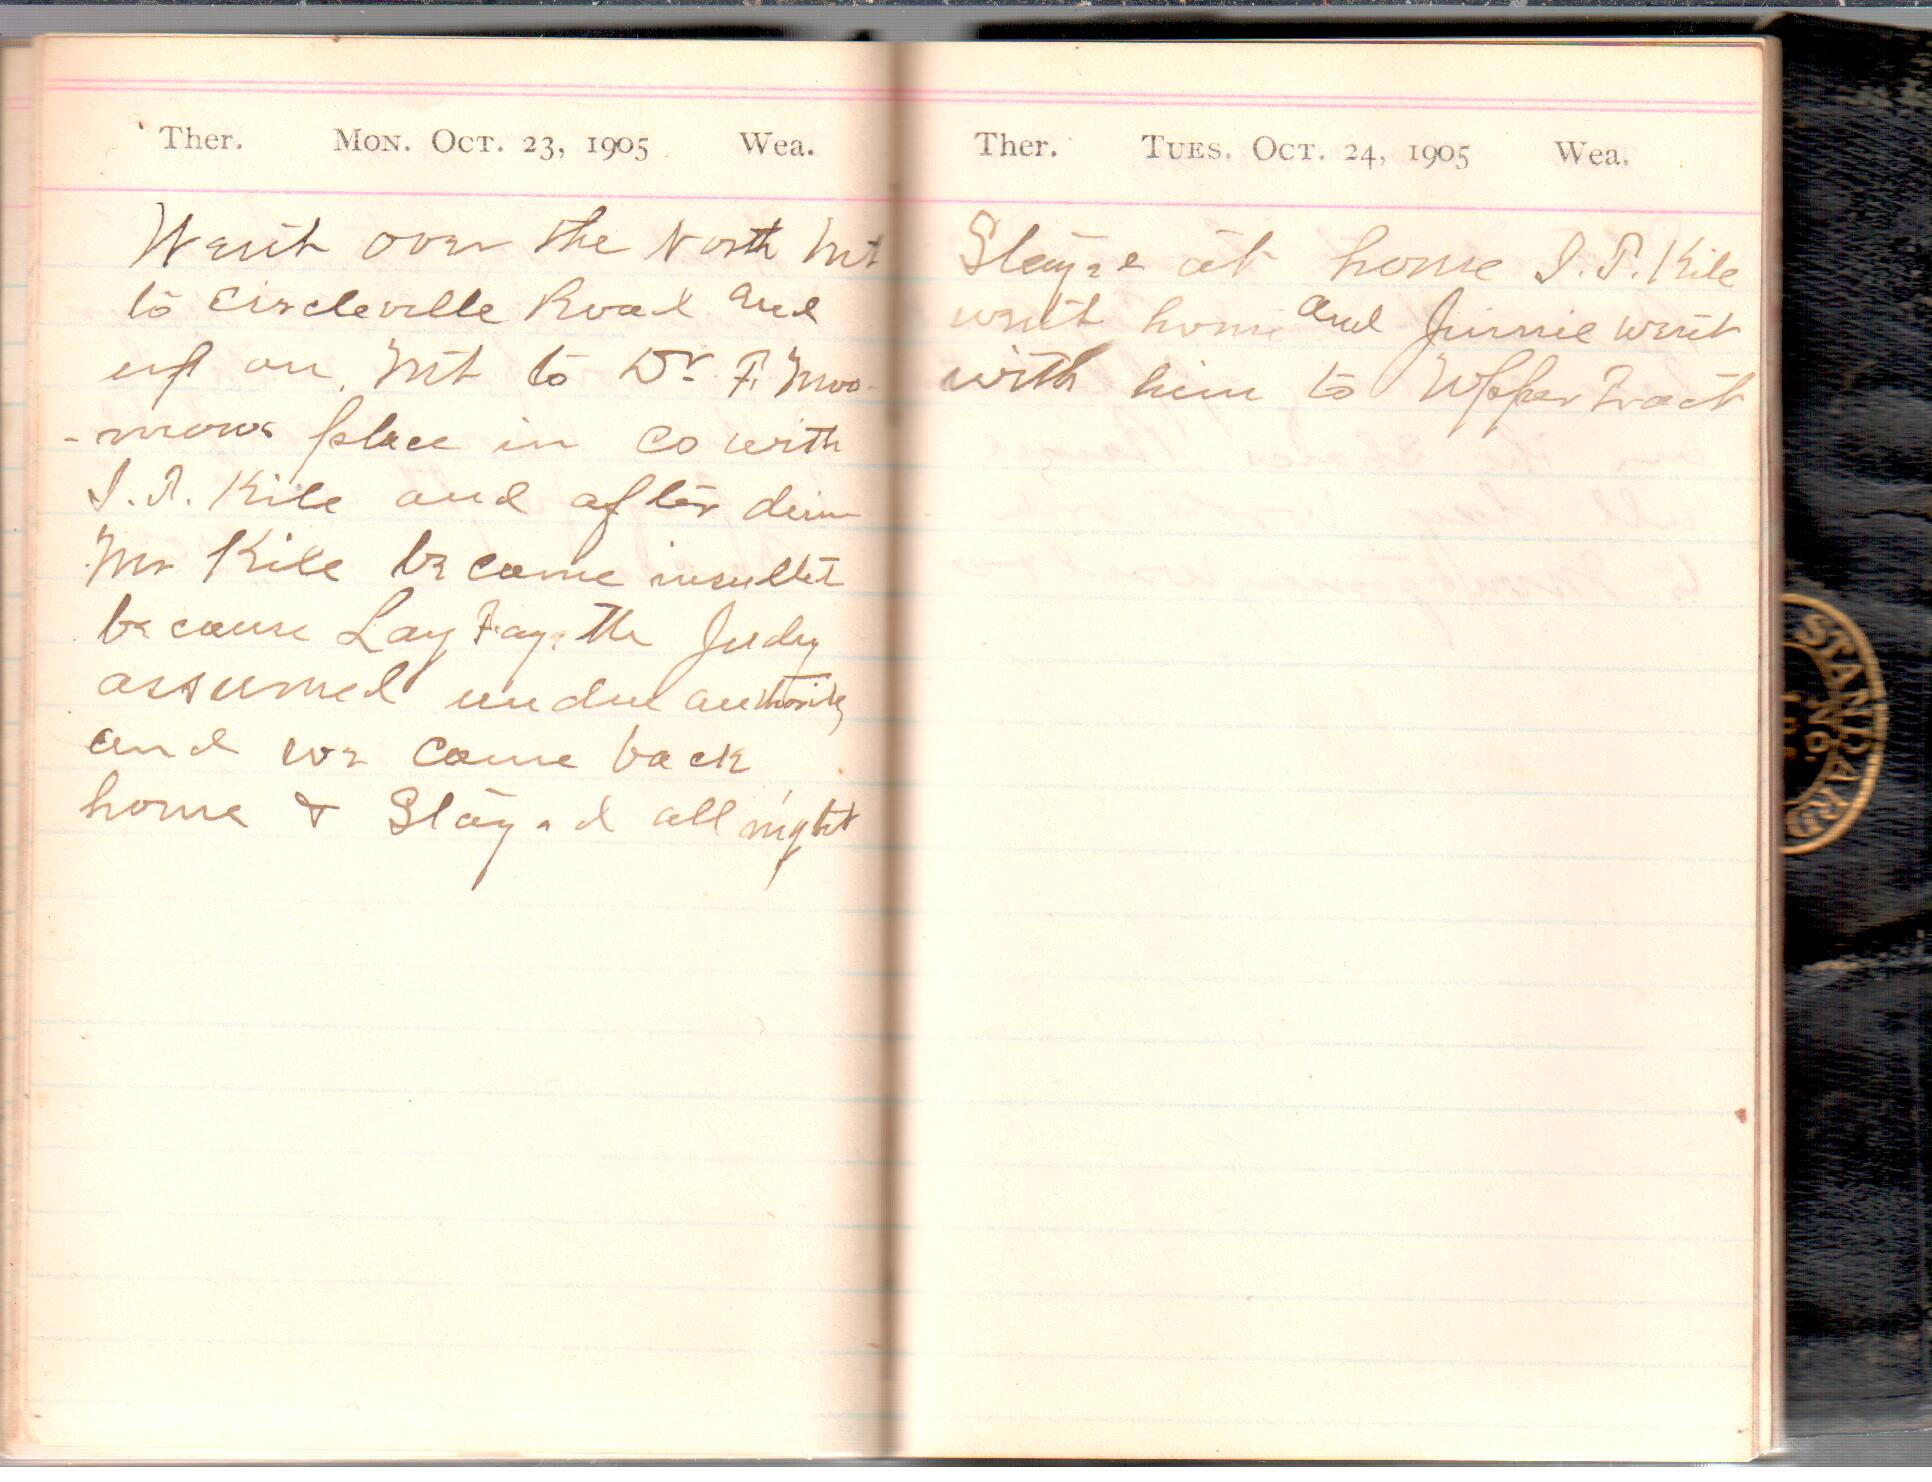 Ther. Mon. Oct. 23, 1905 Wea.
Went over the North Mt
to Circleville Road and
up on Mt to Dr. F. Moo-
-maws place in co with
I. T. Kile and after dinn
Mr Kile become insultet
because Lay Fayette Judy
assumed undue authority
and we came back
home & Stayed all night
Ther. Tues. Oct. 24, 1905 Wea.
Stayed at home I. T. Kile
went home and Jinnie went
with him to Upper Tract
STANDARD
NO.